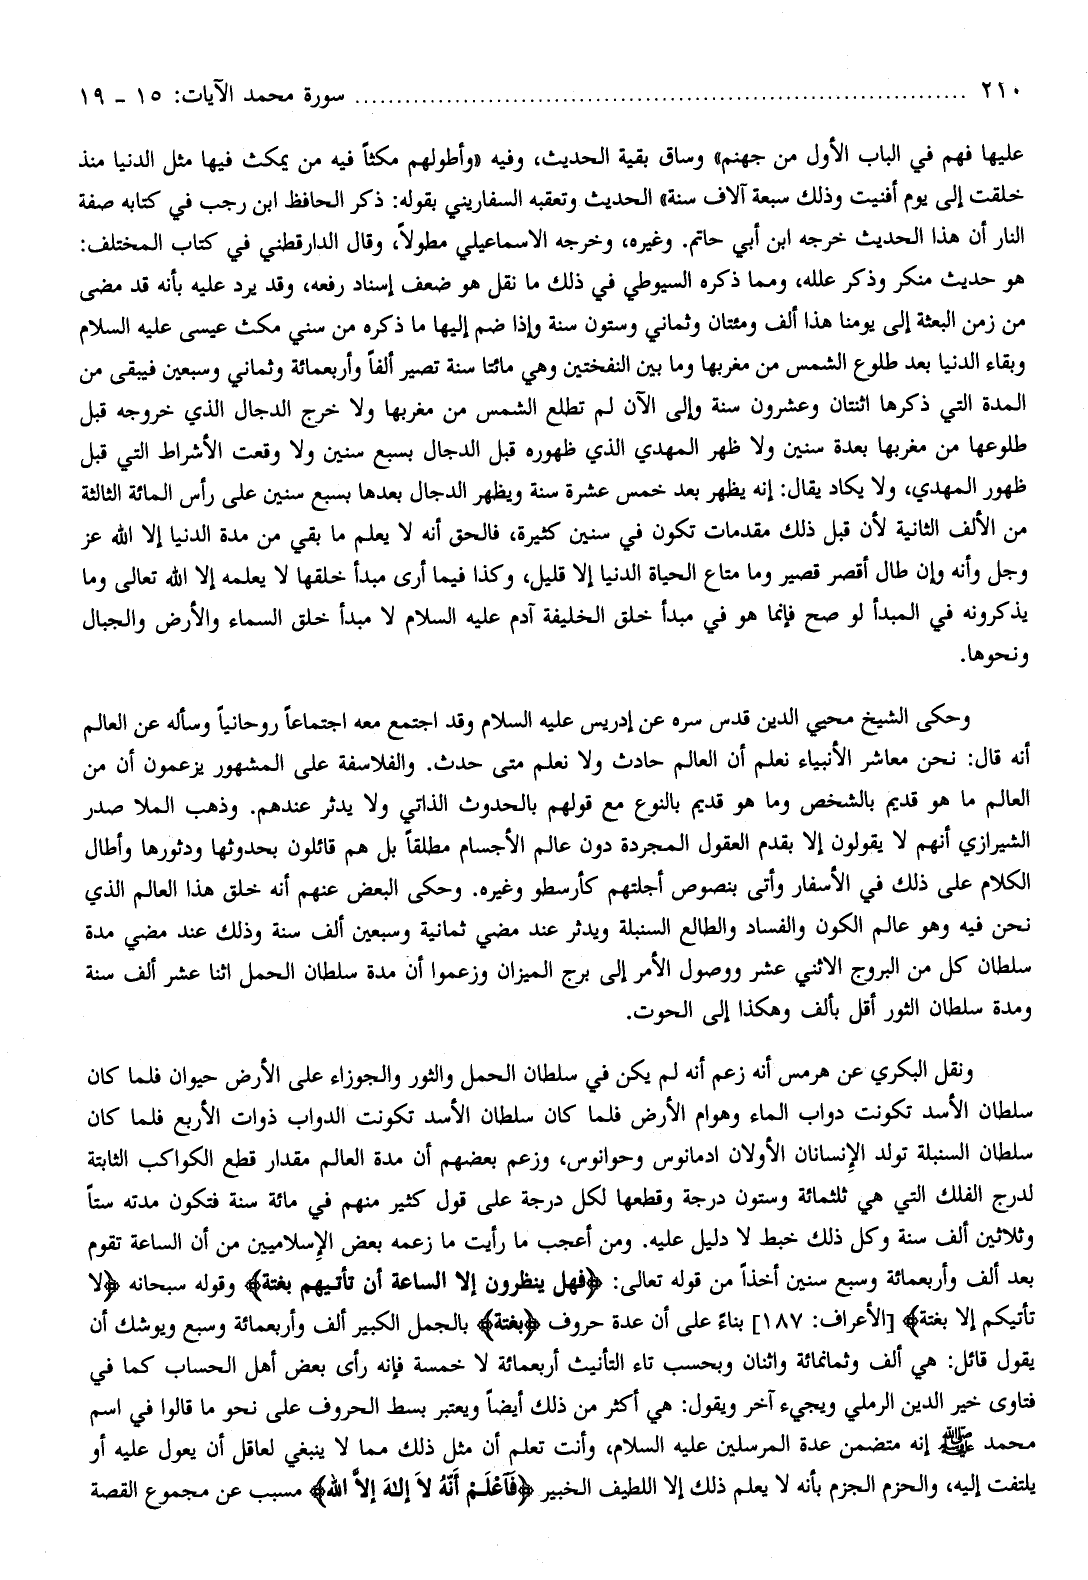 ٢١٠ ........................................ سورة محمد الآيات: ١٥ ـ ١٩
عليها فهم في الباب الأول من جهنم» وساق بقية الحديث، وفيه «وأطولهم مكثاً فيه من يمكث فيها مثل الدنيا منذ
خلقت إلى يوم أفنيت وذلك سبعة آلاف سنة» الحديث وتعقبه السفاريني بقوله: ذكر الحافظ ابن رجب في كتابه صفة
النار أن هذا الحديث خرجه ابن أبي حاتم. وغيره، وخرجه الاسماعيلي مطولاً، وقال الدارقطني في كتاب المختلف:
هو حديث منكر وذكر علله، ومما ذكره السيوطي في ذلك ما نقل هو ضعف إسناد رفعه، وقد يرد عليه بأنه قد مضى
من زمن البعثة إلى يومنا هذا ألف ومئتان وثماني وستون سنة وإذا ضم إليها ما ذكره من سني مكث عيسى عليه السلام
وبقاء الدنيا بعد طلوع الشمس من مغربها وما بين النفختين وهي مائتا سنة تصير ألفاً وأربعمائة وثماني وسبعين فيبقى من
المدة التي ذكرها اثنتان وعشرون سنة وإلى الآن لم تطلع الشمس من مغربها ولا خرج الدجال الذي خروجه قبل
طلوعها من مغربها بعدة سنين ولا ظهر المهدي الذي ظهوره قبل الدجال بسبع سنين ولا وقعت الأشراط التي قبل
ظهور المهدي، ولا يكاد يقال: إنه يظهر بعد خمس عشرة سنة ويظهر الدجال بعدها بسبع سنين على رأس المائة الثالثة
من الألف الثانية لأن قبل ذلك مقدمات تكون في سنين كثيرة، فالحق أنه لا يعلم ما بقي من مدة الدنيا إلا الله عز
وجل وأنه وإن طال أقصر قصير وما متاع الحياة الدنيا إلا قليل، وكذا فيما أرى مبدأ خلقها لا يعلمه إلا الله تعالى وما
يذكرونه في المبدأ لو صح فإنما هو في مبدأ خلق الخليفة آدم عليه السلام لا مبدأ خلق السماء والأرض والجبال
ونحوها.
وحكى الشيخ محيي الدين قدس سره عن إدريس عليه السلام وقد اجتمع معه اجتماعاً روحانياً وسأله عن العالم
أنه قال: نحن معاشر الأنبياء نعلم أن العالم حادث ولا نعلم متى حدث. والفلاسفة على المشهور يزعمون أن من
العالم ما هو قديم بالشخص وما هو قديم بالنوع مع قولهم بالحدوث الذاتي ولا يدثر عندهم. وذهب الملا صدر
الشيرازي أنهم لا يقولون إلا بقدم العقول المجردة دون عالم الأجسام مطلقاً بل هم قائلون بحدوثها ودثورها وأطال
الكلام على ذلك في الأسفار وأتى بنصوص أجلتهم كأرسطو وغيره. وحكى البعض عنهم أنه خلق هذا العالم الذي
نحن فيه وهو عالم الكون والفساد والطالع السنبلة ويدثر عند مضي ثمانية وسبعين ألف سنة وذلك عند مضي مدة
سلطان كل من البروج الاثني عشر ووصول الأمر إلى برج الميزان وزعموا أن مدة سلطان الحمل اثنا عشر ألف سنة
ومدة سلطان الثور أقل بألف وهكذا إلى الحوت.
ونقل البكري عن هرمس أنه زعم أنه لم يكن في سلطان الحمل والثور والجوزاء على الأرض حيوان فلما كان
سلطان الأسد تكونت دواب الماء وهوام الأرض فلما كان سلطان الأسد تكونت الدواب ذوات الأربع فلما كان
سلطان السنبلة تولد الإنسانان الأولان ادمانوس وحوانوس، وزعم بعضهم أن مدة العالم مقدار قطع الكواكب الثابتة
لدرج الفلك التي هي ثلثمائة وستون درجة وقطعها لكل درجة على قول كثير منهم في مائة سنة فتكون مدته ستاً
وثلاثين ألف سنة وكل ذلك خبط لا دليل عليه. ومن أعجب ما رأيت ما زعمه بعض الإسلاميين من أن الساعة تقوم
بعد ألف وأربعمائة وسبع سنين أخذاً من قوله تعالى: ﴿فهل ينظرون إلا الساعة أن تأتيهم بغتة﴾ وقوله سبحانه ﴿لا
تأتيكم إلا بغتة﴾ [الأعراف: ١٨٧] بناءً على أن عدة حروف ﴿بغتة﴾ بالجمل الكبير ألف وأربعمائة وسبع ويوشك أن
يقول قائل: هي ألف وثمانمائة واثنان وبحسب تاء التأنيث أربعمائة لا خمسة فإنه رأى بعض أهل الحساب كما في
فتاوى خير الدين الرملي ويجيء آخر ويقول: هي أكثر من ذلك أيضاً ويعتبر بسط الحروف على نحو ما قالوا في اسم
محمد ﷺ إنه متضمن عدة المرسلين عليه السلام، وأنت تعلم أن مثل ذلك مما لا ينبغي لعاقل أن يعول عليه أو
يلتفت إليه، والحزم الجزم بأنه لا يعلم ذلك إلا اللطيف الخبير ﴿فَاعْلَمْ أَنَّهُ لاَ إِلـٰهَ إلاَّ الله﴾ مسبب عن مجموع القصة